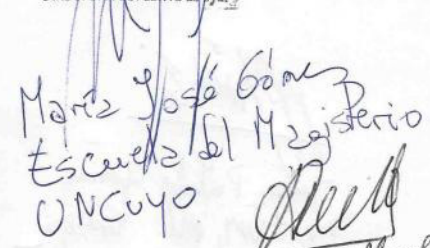 María José Gómez
Escuela del Magisterio
UNCUYO